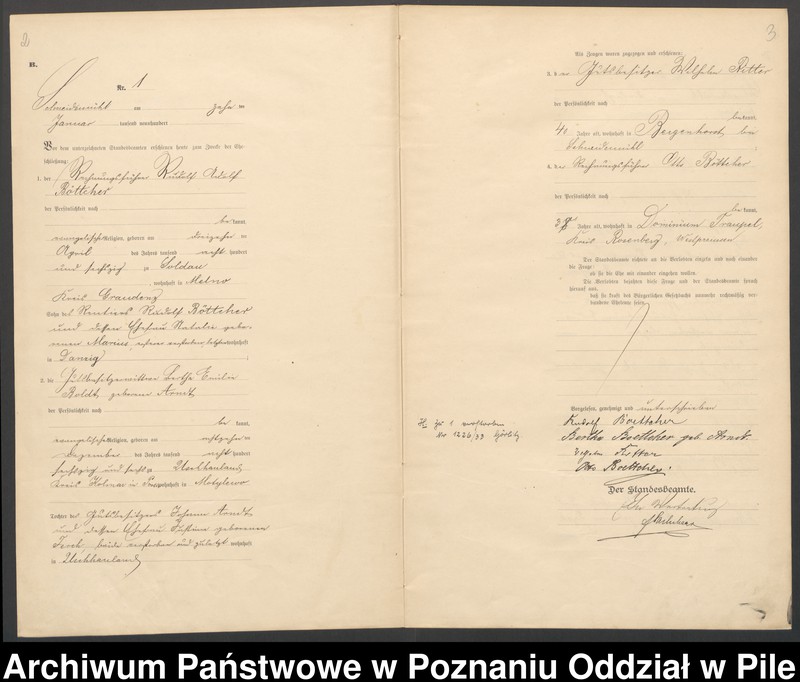 2
B.
Nr. 1
Schneidemühl am zehnten
Januar tausend neunhundert
Vor dem unterzeichneten Standesbeamten erschienen heute zum Zwecke der Ehe-
schließung:
1. der Rechnungsführer Rudolf Adolf
Böttcher
der Persönlichkeit nach
be kannt,
evangelischer Religion, geboren am dreizehnten
April des Jahres tausend acht hundert
und sechszig zu Soldau
, wohnhaft in Melno
Kreis Graudenz
Sohn des Rentiers Rudolf Böttcher
und dessen Ehefrau Natalie gebo-
renen Marius, wohnhaft
in Danzig
2. die Gutsbesitzerwittwe Bertha Emilie
Boldt, geborene Arndt
der Persönlichkeit nach
be kannt,
evangelischer Religion, geboren am achtzehnten
Dezember des Jahres tausend acht hundert
sechszig und sechs zu Uschhauland
Kreis Kolmar in P. wohnhaft in Motylewo
Tochter des Gutsbesitzers Johann Arndt
und dessen Ehefrau Justine geborenen
Tesch, beide verstorben und zuletzt wohnhaft
in Uschhauland
3
Als Zeugen waren zugezogen und erschienen:
3. der Gutsbesitzer Wilhelm Ritter
der Persönlichkeit nach
be kannt,
40 Jahre alt, wohnhaft in Bergenhorst bei
Schneidemühl
4. der Rechnungsführer Otto Böttcher
der Persönlichkeit nach
be kannt,
Jahre alt, wohnhaft in Dominium Traupel,
Kreis Rosenberg, Westpreussen
Der Standesbeamte richtete an die Verlobten einzeln und nach einander
die Frage:
ob sie die Ehe mit einander eingehen wollen.
Die Verlobten bejahten diese Frage und der Standesbeamte sprach
hierauf aus,
daß sie kraft des Bürgerlichen Gesetzbuchs nunmehr rechtmäßig ver-
bundene Eheleute seien.
Vorgelesen, genehmigt und unterschrieben
Rudolf Boettcher
Bertha Boettcher geb. Arndt.
Ritter
Otto Boettcher.
Der Standesbeamte.
In Vertretung
zu 1 verstorben
Nr 1226/33 Görlitz
Archiwum Państwowe w Poznaniu Oddział w Pile